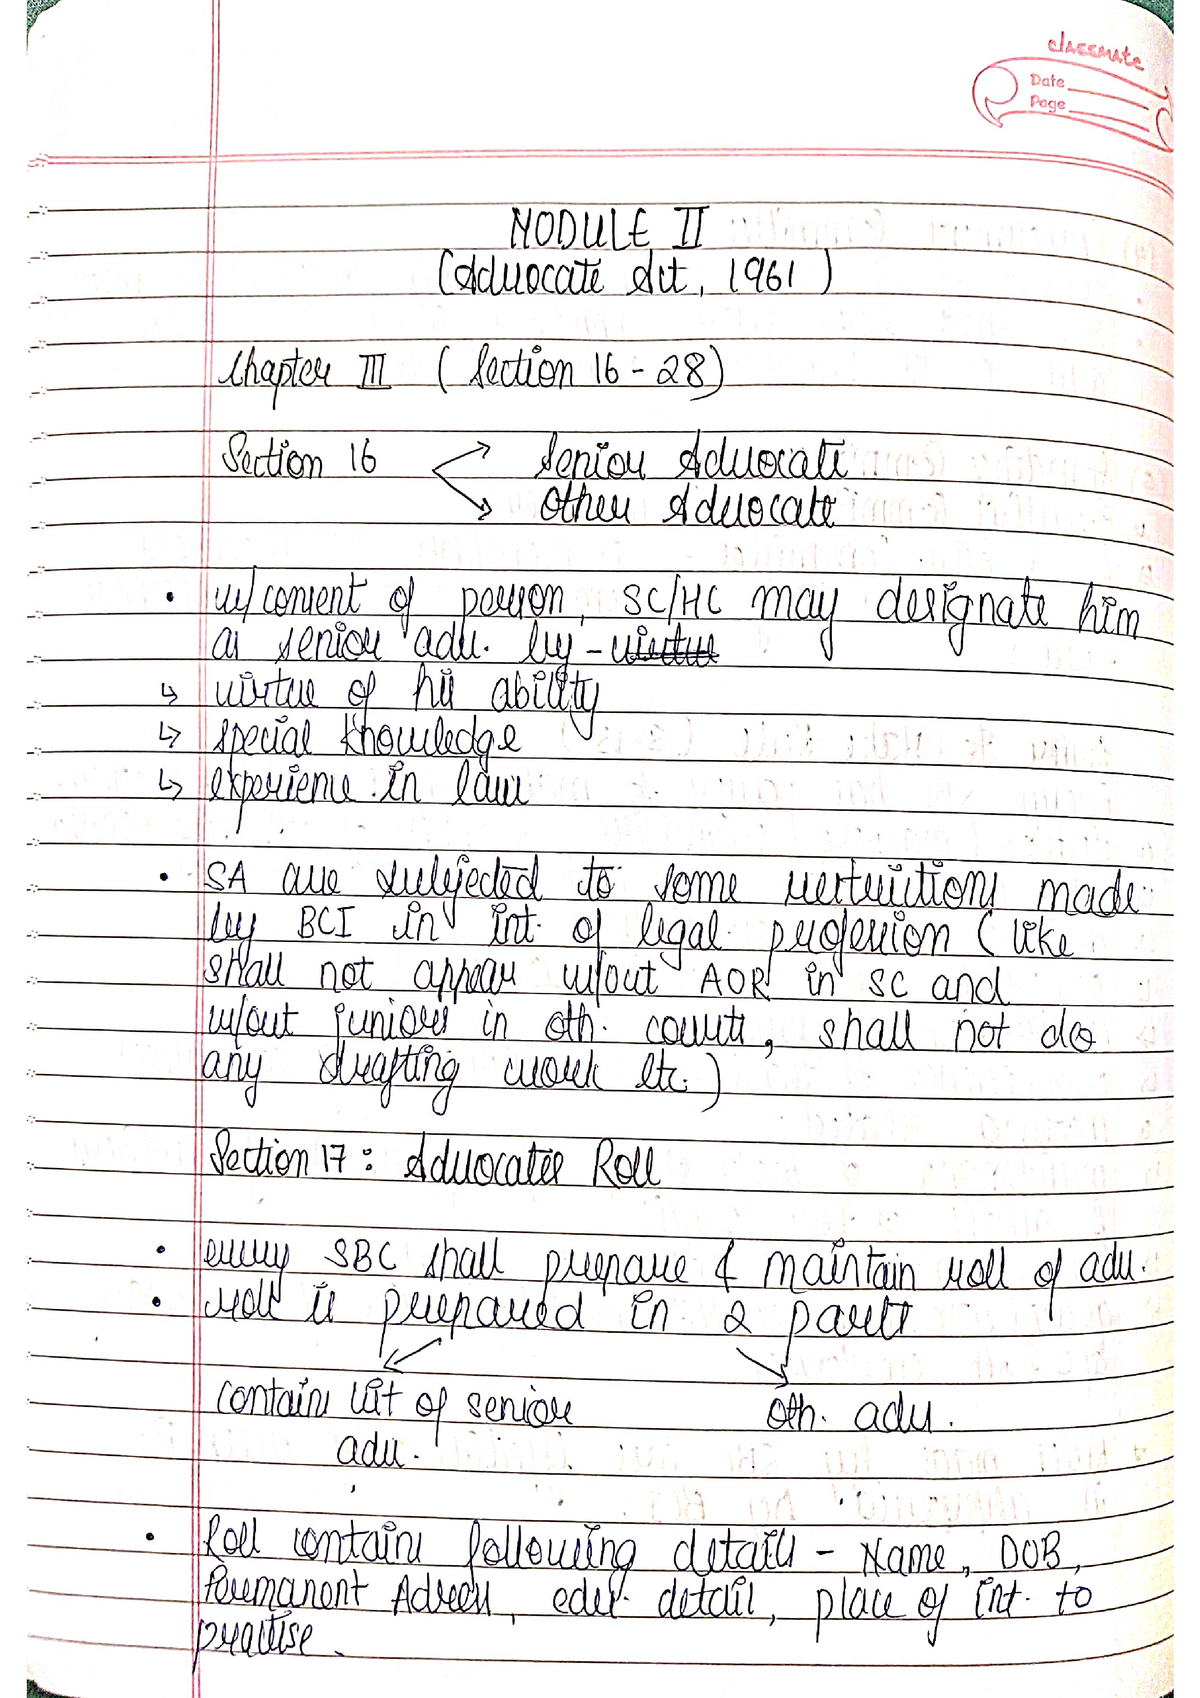 classmate
Date
Page
MODULE II
(Advocate Act, 1961)
Chapter III (Section 16-28)
Section 16
Senior Advocate
Other Advocate
• w/consent of person, SC/HC may designate him
as senior adv. by - virtue
↳ virtue of his ability
↳ special knowledge
↳ experience in law
• SA are subjected to some restrictions made
by BCI in int. of legal profession (like
shall not appear w/out AOR in SC and
w/out juniors in oth. courts, shall not do
any drafting work etc.)
Section 17: Advocates Roll
• every SBC shall prepare & maintain roll of adv.
• roll is prepared in 2 parts
contains list of senior oth. adv.
adv.
• Roll contains following details - Name, DOB,
Permanent Adress, edu. detail, place of int. to
practise.